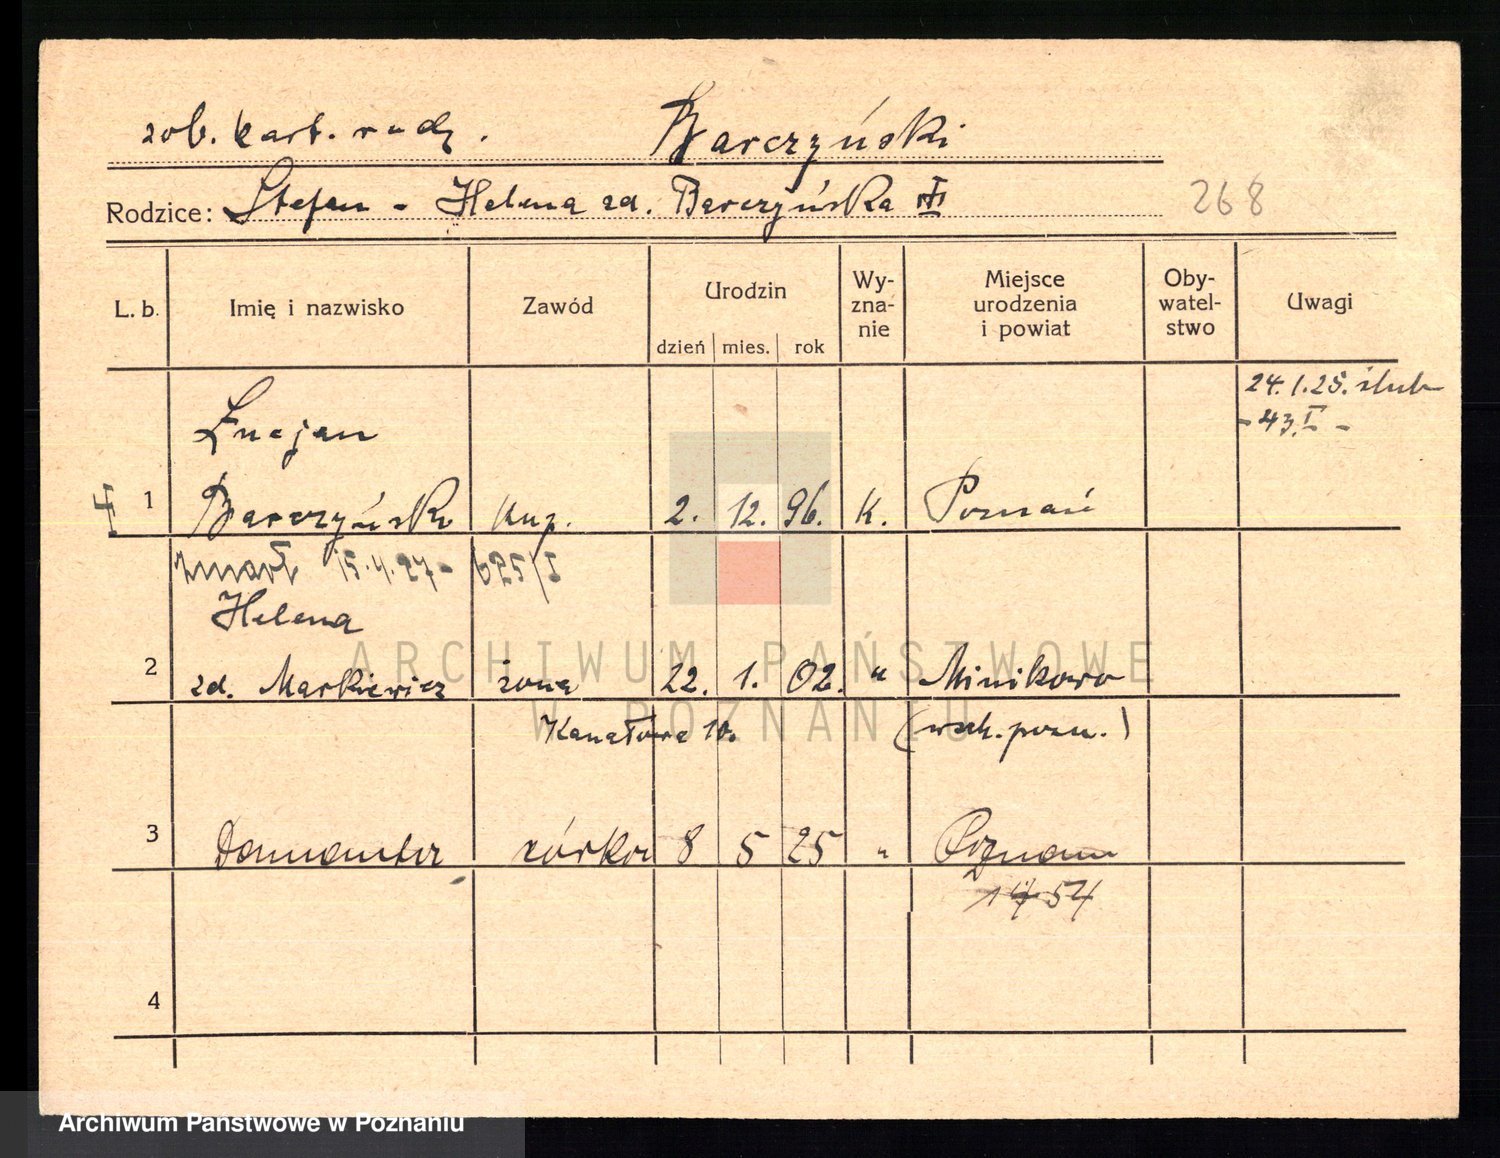 zob. kart. rodz. Barczyński
Rodzice: Stefan - Helena zd. Barczyńska
268
L. b. Imię i nazwisko Zawód Urodzin dzień mies. rok Wy-zna-nie Miejsce urodzenia i powiat Oby-watel-stwo Uwagi
24.1.25. ślub
- 43.I -
Lucjan
1 Barczyński kup. 2. 12. 96. K. Poznań
zmarł 15.4.27 - 625/I
Helena
2 zd. Markiewicz żona 22. 1. 02. " Minikowo
Kanałowa 10. (wsch. pozn.)
3 córka 8 5 25 " Poznań
4
ARCHIWUM PAŃSTWOWE
W POZNANIU
Archiwum Państwowe w Poznaniu